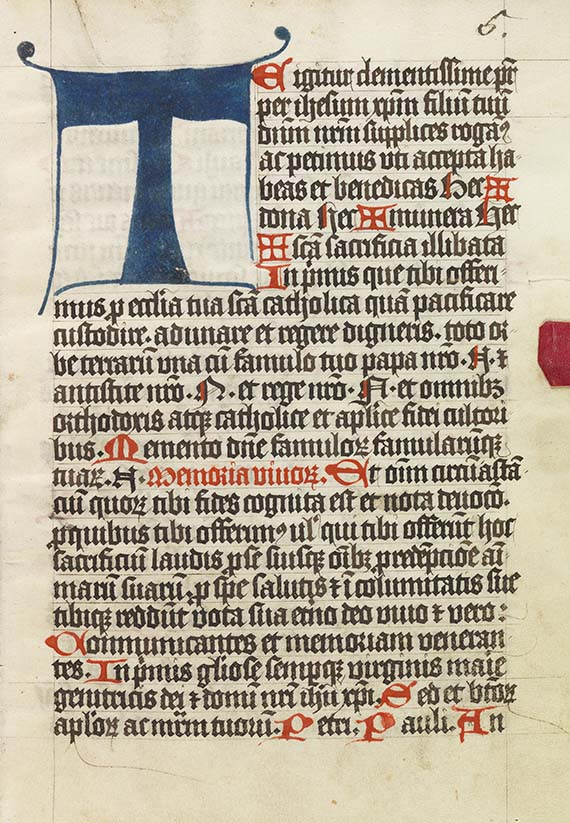 6.
T E igitur clementissime pr̄
per ihesum xp̄m filiū tuū
dn̄m nr̄m supplices rogaꝰ
ac petimus vti accepta ha-
beas et benedicas Hec ✠
dona Hec ✠ munera Hec
✠ scā sacrificia illibata
In p̄mis que tibi offeri-
mus ꝓ ecclīa tua scā catholica quā pacificare
custodire. adunare et regere digneris. toto or
be terrarū vna cū famulo tuo papa nr̄o. N. ⁊
antistite nr̄o. N. et rege nr̄o. N. et omnibꝫ
orthodoxis atqꝫ catholice et aplīce fidei cultori
bus. Memento dn̄e famuloꝝ famularūqꝫ
tuaꝝ. N. Memoria viuoꝝ. Et om̄ circūastā-
ciū quoꝝ tibi fides cognita est et nota deuoc̄o.
ꝓ quibus tibi offerimꝰ ul̓ qui tibi offerūt hoc
sacrificiū laudis ꝓ se suisqꝫ oībꝫ ꝓ redēpcione aī-
marū suarū. ꝓ spe salutis ⁊ īcolumitatis sue
tibiqꝫ reddūt vota sua et̄no deo viuo ⁊ vero:
Communicantes et memoriam veneran
tes. In p̄mis gl̄iose sempqꝫ virginis maie
genitricis dei ⁊ domī nr̄i ihū xp̄i. Sed et btōꝝ
apl̄oꝝ ac mr̄m tuorū. Petri. Pauli. An